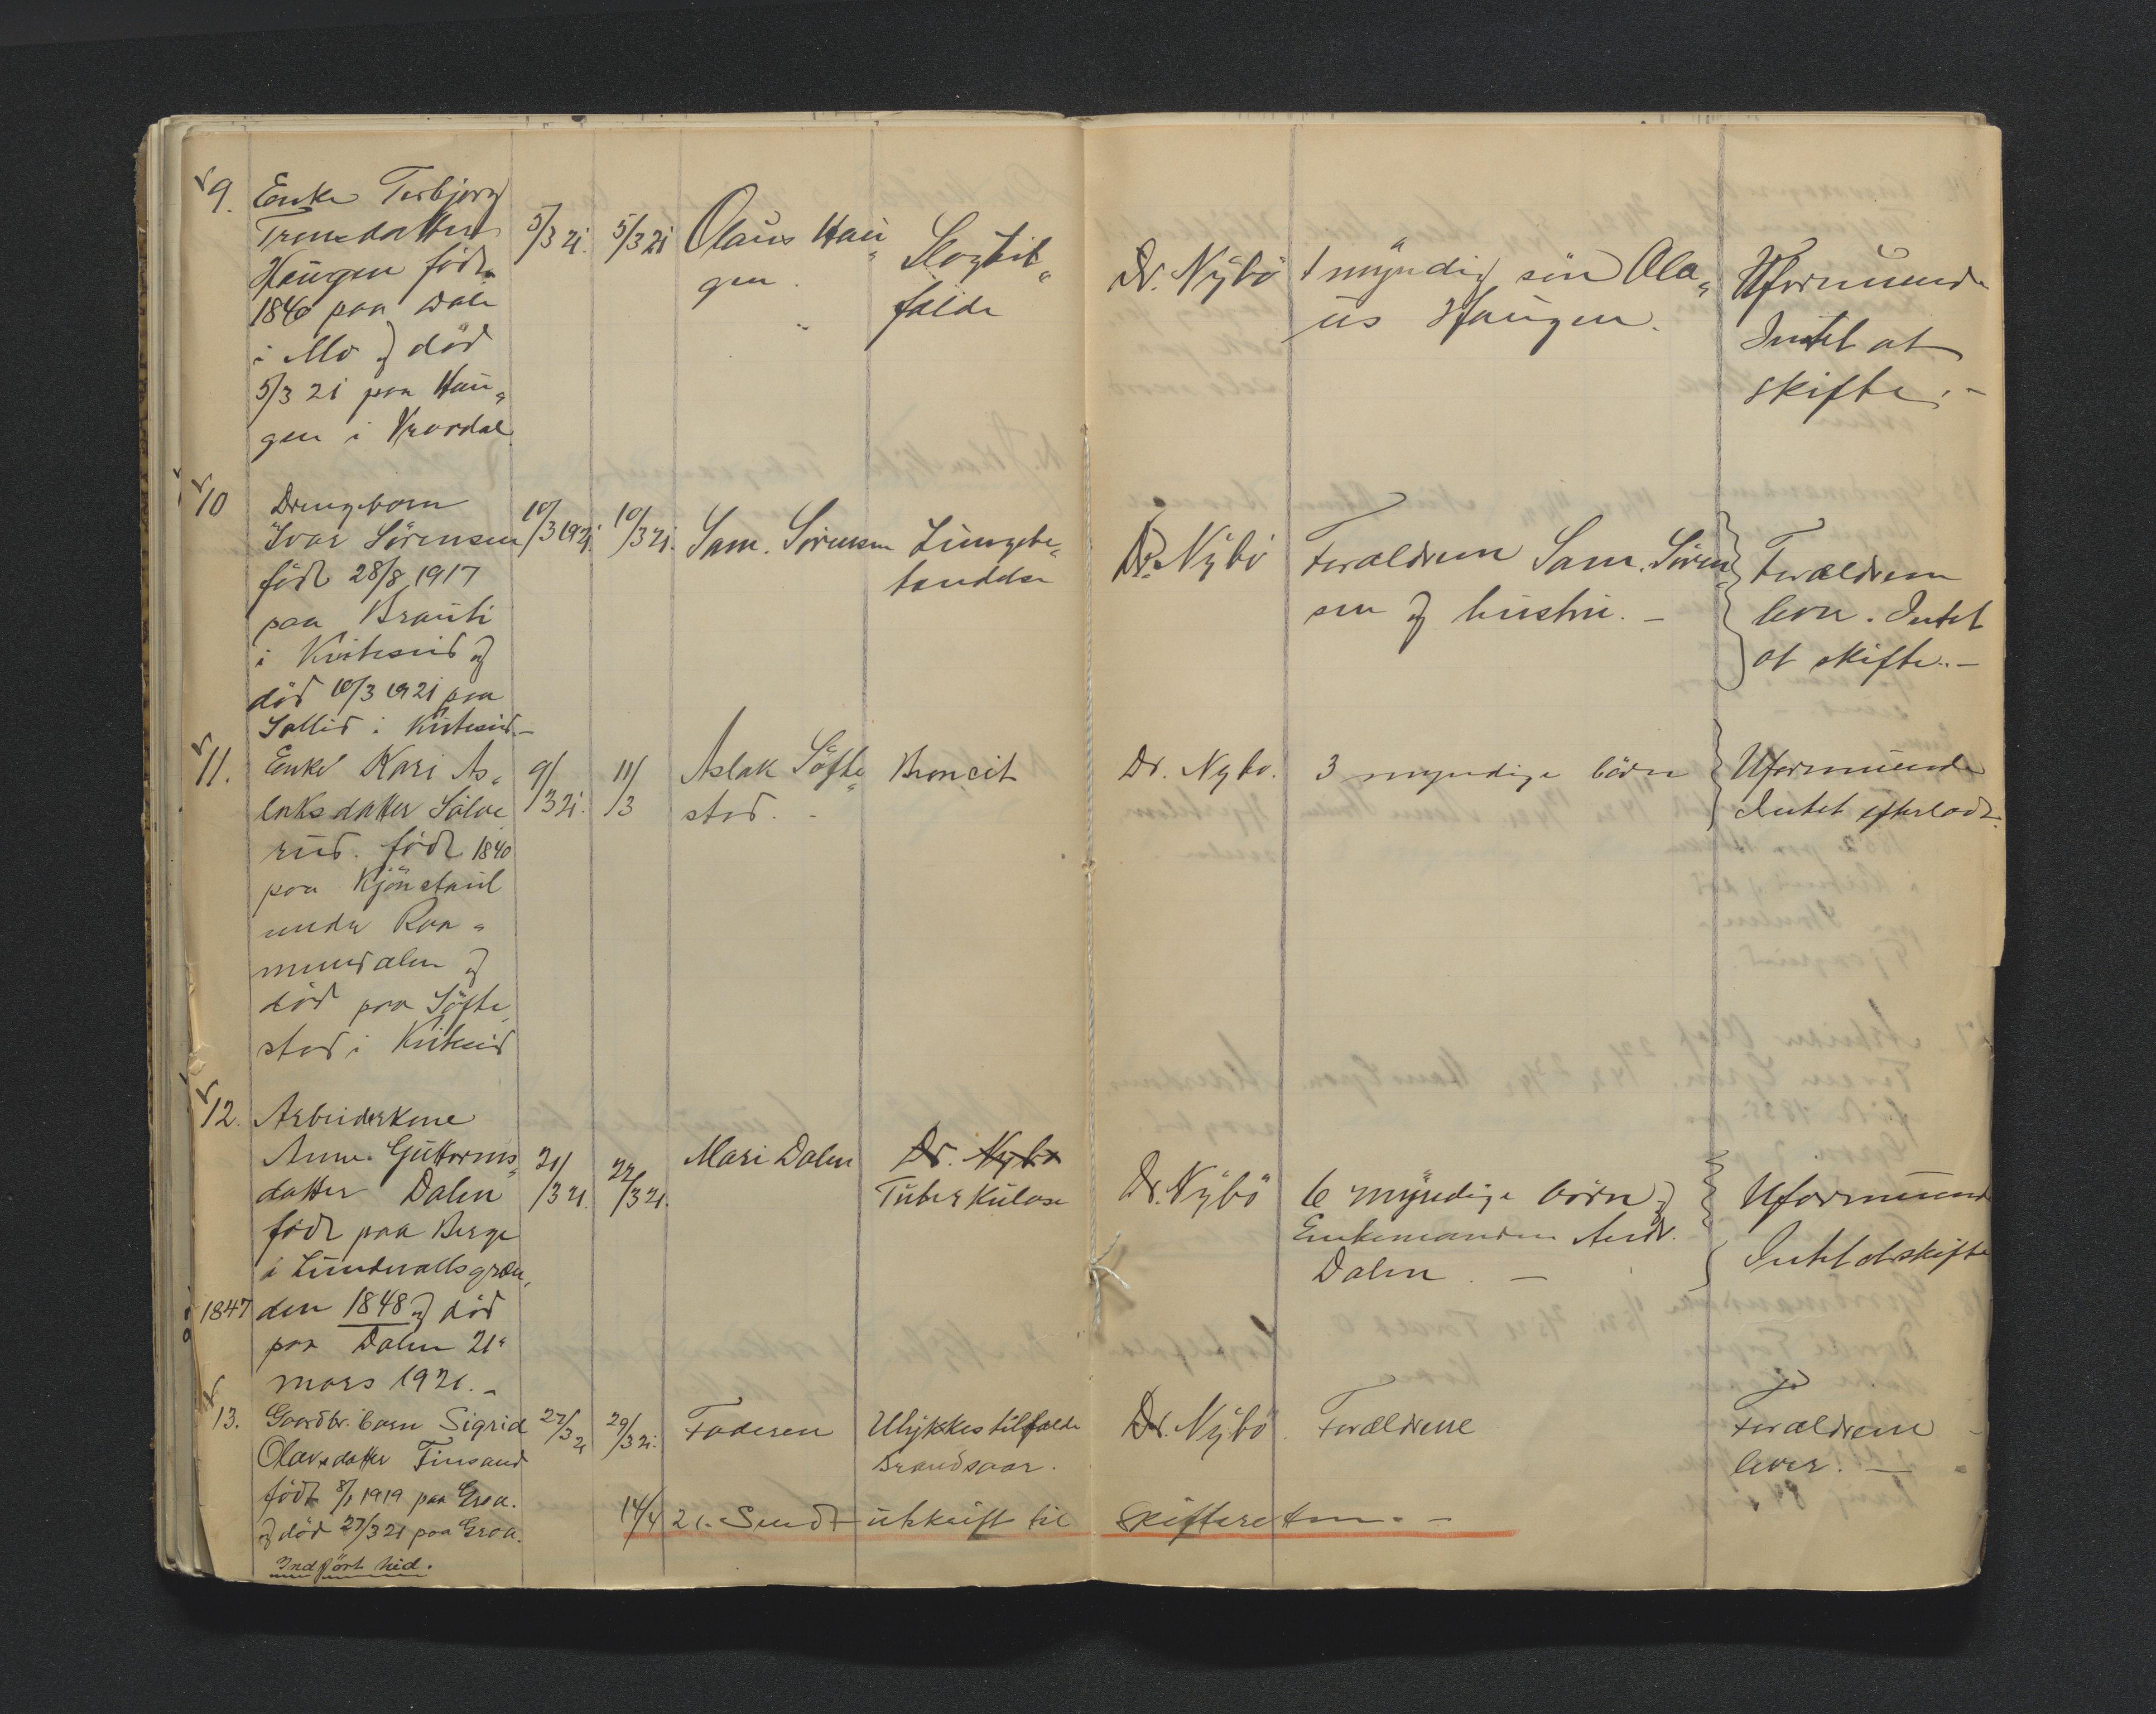 9.
Enke Torbjørg
Tronsdatter
Haugen født
1840 paa Dale
i Mo og död
5/3 21 paa Hau„
gen i Vraadal
5/3 21.
5/3 21
Olaus Hau„
gen.
Slagtil„
fælde
Dr. Nybö
1 myndig sön Ola„
us Haugen.
Uformuende
Intet at
skifte. -
10
Drengebarn
Ivar Sörensen
födt 28/8 1917
paa Brauti
i Kviteseid og
död 10/3 1921 paa
i Kviteseid. -
10/3 1921.
10/3 21.
Sam. Sörensen
Lungebe„
tændelse
Dr. Nybö
Forældrene Sam. Sören„
sen og hustru. -
Forældrene
lever. Intet
at skifte. -
11.
Enke Kari As„
laksdatter Sölve
rud. födt 1840
paa Kjönstaul
under Raa„
mundalen og
död paa Söfte„
stad i Kviteseid
9/3 21.
11/3
Aslak Söfte„
stad. -
Broncit
Dr. Nybo.
3 myndige börn
Uformuende
Intet efterladt.
12.
Arbeiderkone
Anne Guttorms„
datter Dalen
födt paa Berge
i Lundevallsgræn„
1847 den 1848 og död
paa Dalen 21„
mars 1921. -
21/3 21.
22/3 21.
Mari Dalen
Dr. Nybo
Tuberkulose
Dr. Nybö
6 myndige börn og
Enkemanden Andr.
Dalen. -
Uformuende
Intet at skifte
13.
Gaardbr. barn Sigrid
Olavsdatter Tinsand
födt 8/1 1919 paa Groa.
og död 27/3 21 paa Groa.
Indfört hid.
27/3 21
29/3 21.
Faderen
Ulykkestilfælde
Brandsaar.
Dr. Nybö
Forældrene
Forældrene
lever. -
14/4 21. Sendt utskrift til Skifteretten. -